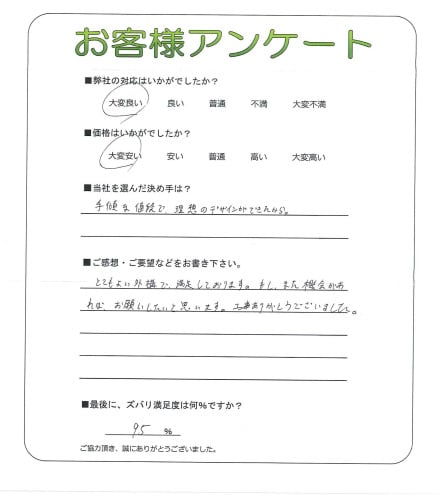 お客様アンケート
■弊社の対応はいかがでしたか？
大変良い 良い 普通 不満 大変不満
■価格はいかがでしたか？
大変安い 安い 普通 高い 大変高い
■当社を選んだ決め手は？
手頃な値段で、理想のデザインができたから。
■ご感想・ご要望などをお書き下さい。
とてもよい外構で、満足しております。もし、また機会があ
れば、お願いしたいと思います。工事ありがとうございました。
■最後に、ズバリ満足度は何%ですか？
95 %
ご協力頂き、誠にありがとうございました。